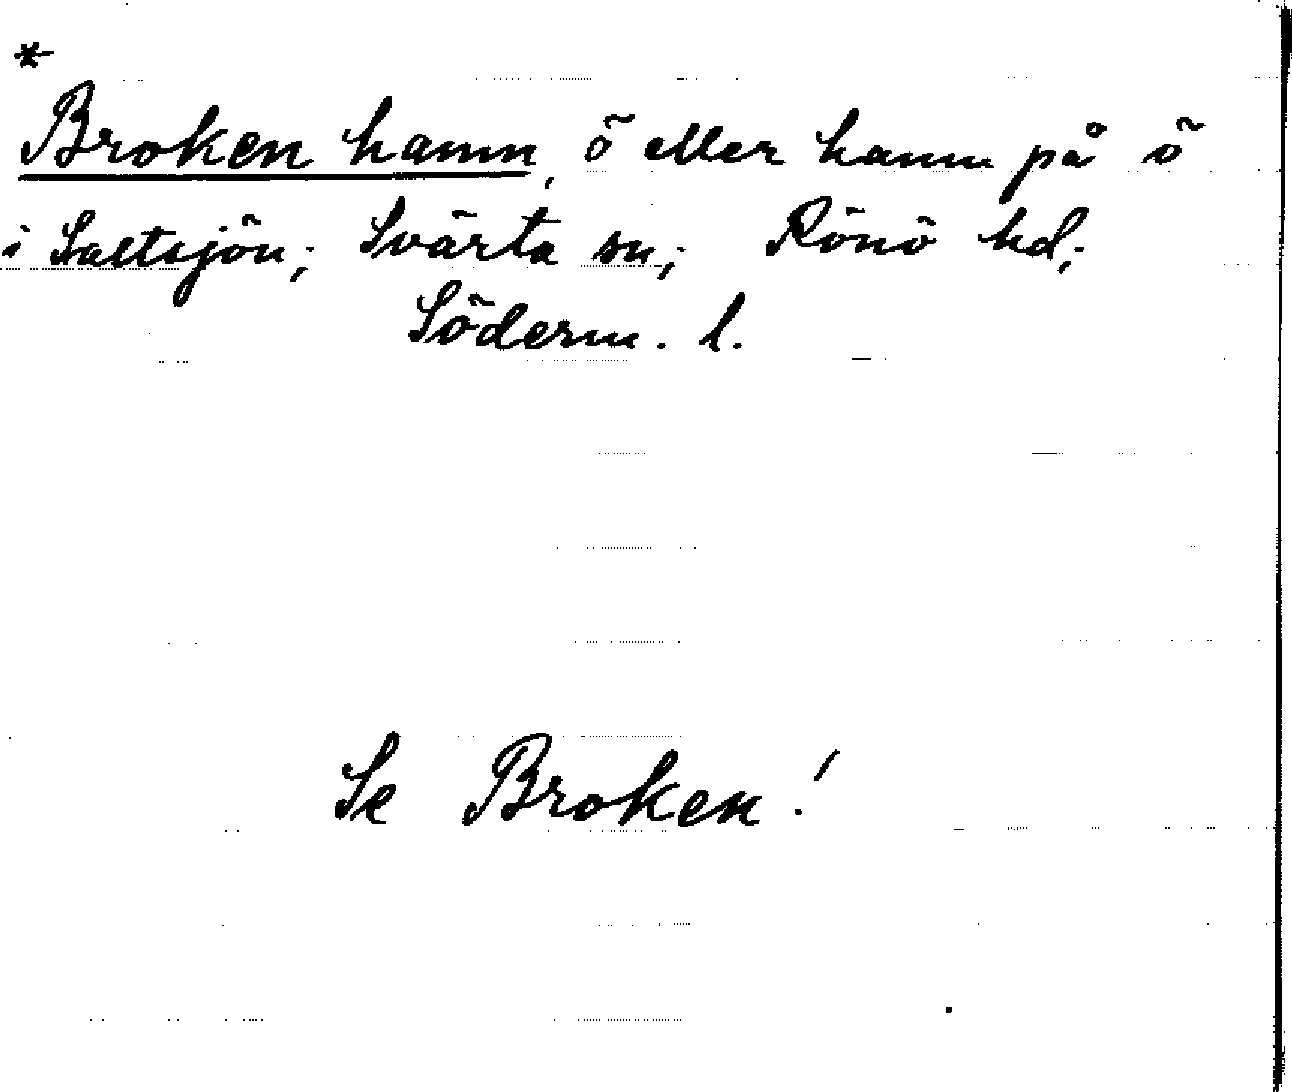 *
Broken hamn, ö eller hamn på ö
i Saltsjön; Svärta sn; Rönö hd;
Söderm. l.
Se Broken!